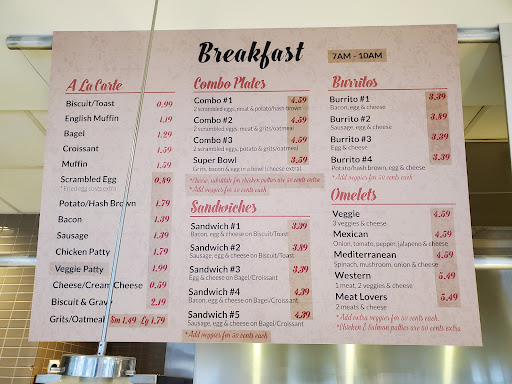 Breakfast
7AM - 10AM
A La Carte
Biscuit/Toast 0.99
English Muffin 1.19
Bagel 1.29
Croissant 1.59
Muffin 1.59
Scrambled Egg 0.89
* Fried egg costs extra
Potato/Hash Brown 1.79
Bacon 1.39
Sausage 1.39
Chicken Patty 1.79
Veggie Patty 1.99
Cheese/Cream Cheese 0.59
Biscuit & Gravy 2.19
Grits/Oatmeal Sm 1.49 Lg 1.79
Combo Plates
Combo #1 4.59
2 scrambled eggs, meat & potato/hash brown
Combo #2 4.59
2 scrambled eggs, meat & grits/oatmeal
Combo #3 4.59
2 scrambled eggs, potato & grits/oatmeal
Super Bowl 3.59
Grits, bacon & egg in a bowl (cheese extra)
substitute for chicken patties are 50 cents extra
* Add veggies for 50 cents each
Sandwiches
Sandwich #1 3.39
Bacon, egg & cheese on Biscuit/Toast
Sandwich #2 3.89
Sausage, egg & cheese on Biscuit/Toast
Sandwich #3 3.39
Egg & cheese on Bagel/Croissant
Sandwich #4 4.39
Bacon, egg & cheese on Bagel/Croissant
Sandwich #5 4.39
Sausage, egg & cheese on Bagel/Croissant
* Add veggies for 50 cents each
Burritos
Burrito #1 3.39
Bacon, egg & cheese
Burrito #2 3.89
Sausage, egg & cheese
Burrito #3 3.39
Egg & cheese
Burrito #4 3.39
Potato/hash brown, egg & cheese
* Add veggies for 50 cents each
Omelets
Veggie 4.59
3 veggies & cheese
Mexican 4.59
Onion, tomato, pepper, jalapeno & cheese
Mediterranean 4.59
Spinach, mushroom, onion & cheese
Western 5.49
1 meat, 2 veggies & cheese
Meat Lovers 5.49
2 meats & cheese
* Add extra veggies for 50 cents each
* Chicken & Salmon patties are 50 cents extra